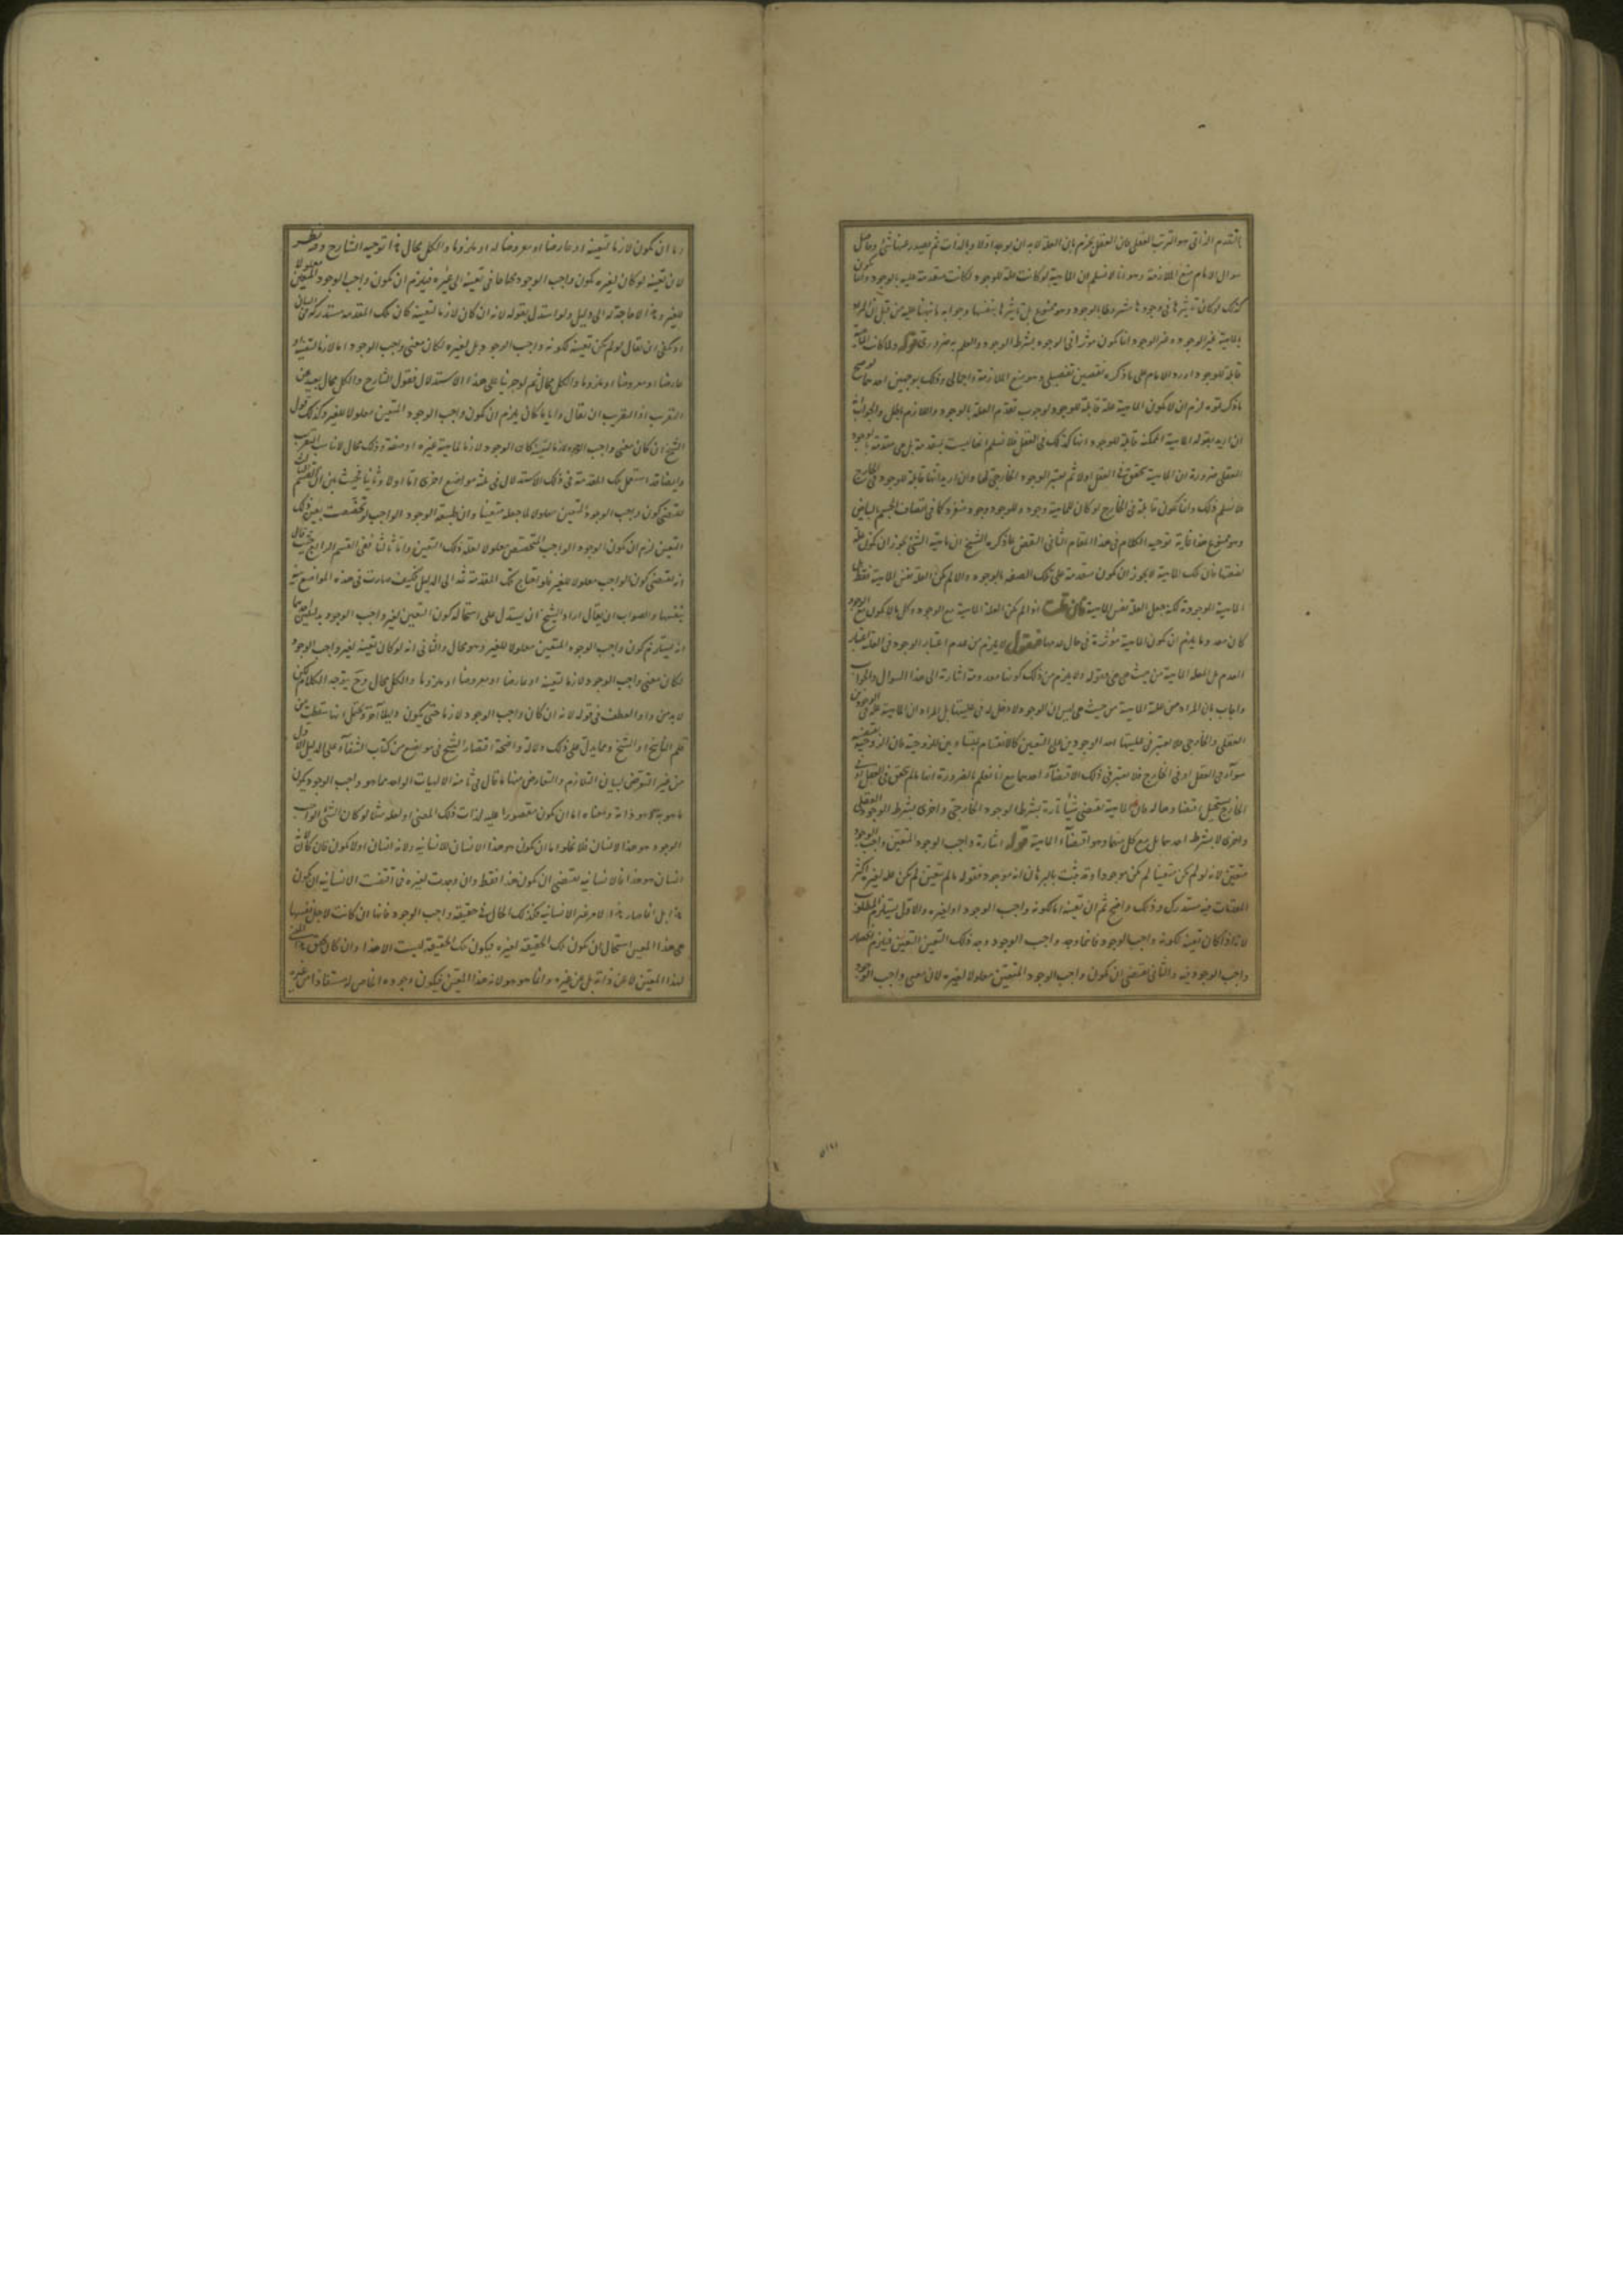 بالتقدم الذاتى هو الترتب العقلى فان العقل يجزم بان العلة لابد ان يوجد اولا وبالذات ثم يصدر عنها شئ وحاصل
سوال الامام منع الملازمة وهو انا لانسلم ان الماهية لو كانت علة للوجود لكانت متقدمة عليه بالوجود وانما يكون
كذلك لو كان تاثيرها فى وجودها مشروطا بالوجود وهو ممنوع بل تاثيرها بنفسها وجوابه ما نبهنا عليه من قبل ان المراد
بالماهية غير الوجود وغير الوجود انما يكون موثرا فى الوجود بشرط الوجود والعلم به ضرورى قوله ولما كانت الماهية
قابلة للوجود اورد الامام على ما ذكره نقضين تفصيلى وهو منع الملازمة واجمالى وذلك بوجهين احدهما لو صح
ما ذكرتموه لزم ان لا يكون الماهية علة قابلة للوجود لوجوب تقدم العلة بالوجود واللازم باطل والجواب انه
ان اريد بقوله الماهية الممكنة قابلة للوجود انها كذلك فى العقل فلا نسلم انها ليست بمتقدمة بل هى متقدمة بالوجود
العقلى ضرورة ان الماهية تحقق فى العقل اولا ثم يعتبر الوجود الخارجى لها وان اريد انها قابلة للوجود فى الخارج
فلا نسلم ذلك وانما يكون قابلة فى الخارج لو كان للماهية وجود وللوجود وجود منفرد كما فى اتصاف الجسم بالبياض
وهو ممنوع هذا غاية توجيه الكلام فى هذا المقام الثانى النقض بما ذكره الشيخ ان ماهية الشئ يجوز ان تكون علة
لصفتها فان تلك الماهية لا يجوز ان يكون متقدمة على تلك الصفة بالوجود والا لم يكن العلة نفس الماهية فقط بل
الماهية الموجودة لكنه جعل العلة نفس الماهية فان قلت اذا لم يكن العلة الماهية مع الوجود وكل ما لا يكون مع الوجود
كان معدوما يلزم ان يكون الماهية مؤثرة فى حال عدمها فنقول لا يلزم من عدم اعتبار الوجود فى العلة اعتبار
العدم بل العلة الماهية من حيث هى هى وقوله ولا يلزم من ذلك كونها معدومة اشارة الى هذا السوال والجواب
واجاب بان المراد من علية الماهية من حيث هى ليس ان الوجود لا دخل له فى عليتها بل المراد ان الماهية علة فى الوجودين
العقلى والخارجى فلا يعتبر فى عليتها احد الوجودين على التعيين كالانقسام بمتساويين للزوجية فان الزوجية تقتضيه
سواء فى العقل او فى الخارج فلا يعتبر فى ذلك الاقتضاء احدهما مع انا نعلم بالضرورة انها ما لم تحقق فى العقل او فى
الخارج يستحيل اقتضاؤها له فان الماهية تقتضى شيئا تارة بشرط الوجود الخارجى واخرى بشرط الوجود العقلى
واخرى لا بشرط احدهما بل مع كل منهما وهو اقتضاء الماهية قوله اشارة واجب الوجود المتعين واجب الوجود
متعين لانه لو لم يكن متعينا لم يكن موجودا وقد ثبت بالبرهان انه موجود فقوله ما لم يتعين لم يكن علة لغيره اكثر
المقدمات فيه مستدرك وذلك واضح ثم ان تعينه اما لكونه واجب الوجود او لغيره والاول يستلزم المطلوب
لانه اذا كان تعينه لكونه واجب الوجود فاينما وجد واجب الوجود وجد ذلك التعين فيلزم انحصار
واجب الوجود فيه والثانى يقتضى ان يكون واجب الوجود المتعين معلولا لغيره لان معنى واجب الوجود
اما ان يكون لازما لتعينه او عارضا او معروضا له او ملزوما والكل محال هذا توجيه الشارح وفيه نظر
لان تعينه لو كان لغيره يكون واجب الوجود محتاجا فى تعينه الى غيره فيلزم ان يكون واجب الوجود المتعين معلولا
للغير وهذا لا حاجة له الى دليل ولو استدل بقوله لانه ان كان لازما لتعينه كان تلك المقدمة مستدركة فى البيان
اذ يكفى ان يقال لو لم يكن تعينه لكونه واجب الوجود بل لغيره لكان معنى واجب الوجود اما لازما لتعينه او
عارضا او معروضا او ملزوما والكل محال ثم لو جرينا على هذا الاستدلال فقول الشارح والكل محال بعيد عن
التقريب اذ التقريب ان يقال وايا ما كان يلزم ان يكون واجب الوجود المتعين معلولا للغير وكذلك قول
الشيخ ان كان معنى واجب الوجود لازما لتعينه كان الوجود لازما لماهية غيره او صفة وذلك محال لا يناسب التقريب
وايضا قد استعمل تلك المقدمة فى ذلك الاستدلال فى ثلثة مواضع اخرى اما اولا وثانيا فحيث بين ان القسم الثالث
يقتضى كون واجب الوجود المتعين معلولا لما جعله متعينا وان طبيعة الوجود الواجب لو تخصصت بعين ذلك
التعين لزم ان يكون الوجود الواجب المتخصص معلولا لعلة ذلك التعين واما ثالثا ففى القسم الرابع حيث قال
انه يقتضى كون الواجب معلولا للغير فلو احتاج تلك المقدمة ثمه الى الدليل فكيف صارت فى هذه المواضع بينة
بنفسها والصواب ان يقال اراد الشيخ ان يستدل على استحالة كون التعين لغير واجب الوجود بدليلين احدهما
انه يستلزم كون واجب الوجود المتعين معلولا للغير وهو محال والثانى انه لو كان تعينه لغير واجب الوجود
لكان معنى واجب الوجود لازما لتعينه او عارضا او معروضا او ملزوما والكل محال وح يتوجه الكلام لكن
لا بد من واو العطف فى قوله لانه ان كان واجب الوجود لازما حتى يكون دليلا آخر ويحتمل انها سقطت من
قلم الناسخ او الشيخ ومما يدل على ذلك دلالة واضحة اقتصار الشيخ فى موضع من كتاب الشفاء على الدليل الاول
من غير التعرض لبيان التلازم والتعارض منها ما قال فى ثامنة الالهيات الواحد مما هو واجب الوجود يكون
ما هو به هو ذاته ومعناه اما ان يكون مقصورا عليه لذات ذلك المعنى او لعلة مثلا لو كان الشئ الواجب
الوجود هو هذا الانسان فلا يخلو اما ان يكون هو هذا الانسان للانسانية ولانه انسان او لا يكون فان كان لانه
انسان هو هذا فالانسانية تقتضى ان يكون هذا فقط وان وجدت لغيره فما اقتضت الانسانية ان يكون
هذا بل انما صار هذا لامر غير الانسانية وكذلك الحال فى حقيقة واجب الوجود فانها ان كانت لاجل نفسها
هى هذا المعين استحال ان يكون تلك الحقيقة لغيره فيكون تلك الحقيقة ليست الا هذا وان كان تحقق هذا المعنى
لهذا المتعين لا عن ذاته بل عن غيره وانما هو هو لانه هذا المتعين فيكون وجوده الخاص له مستفادا من غيره